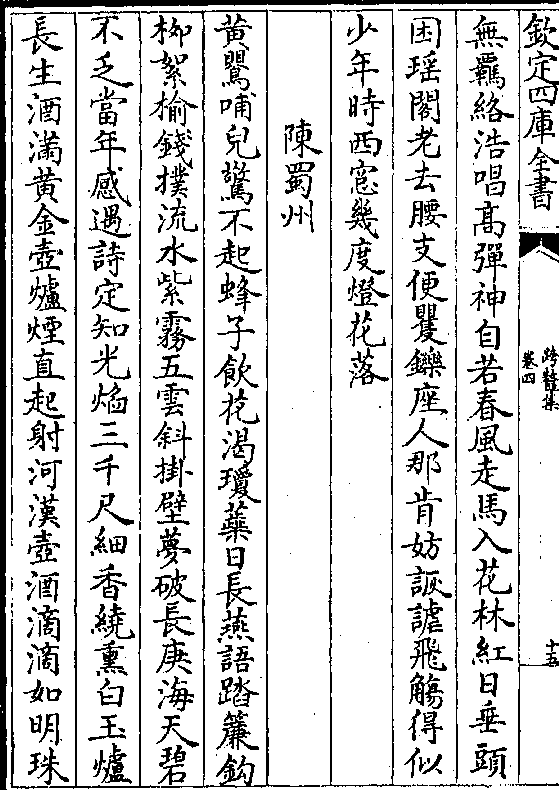 欽定四庫全書
跨鼇集
卷四
十五
無羈絡浩唱高彈神自若春風走馬入花林紅日垂頭
困瑶閣老去腰支便矍鑠座人那肯妨詼謔飛觴得似
少年時西窓幾度燈花落
陳蜀州
黄鸎哺兒驚不起蜂子飲花渇瓊蘂日長燕語踏簾鈎
柳絮榆錢撲流水紫霧五雲斜掛壁夢破長庚海天碧
不乏當年感遇詩定知光焰三千尺細香繞熏白玉爐
長生酒滿黄金壺爐煙直起射河漢壺酒滴滴如明珠